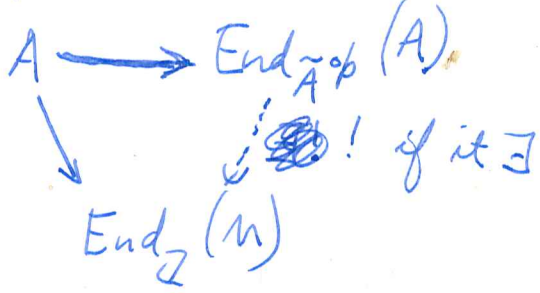 A → End_{Ã^{op}}(A).
! if it ∃
End_ℤ(M)